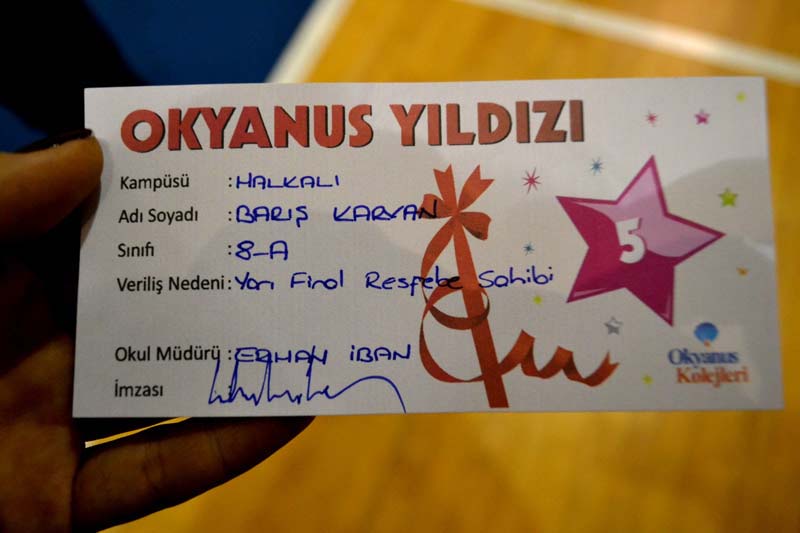 OKYANUS YILDIZI
Kampüsü : HALKALI
Adı Soyadı : BARIŞ KARVAN
Sınıfı : 8-A
Veriliş Nedeni : Yarı Final Resfebe Sahibi
Okul Müdürü : ERHAN İBAN
İmzası :
5
Okyanus
Kolejleri